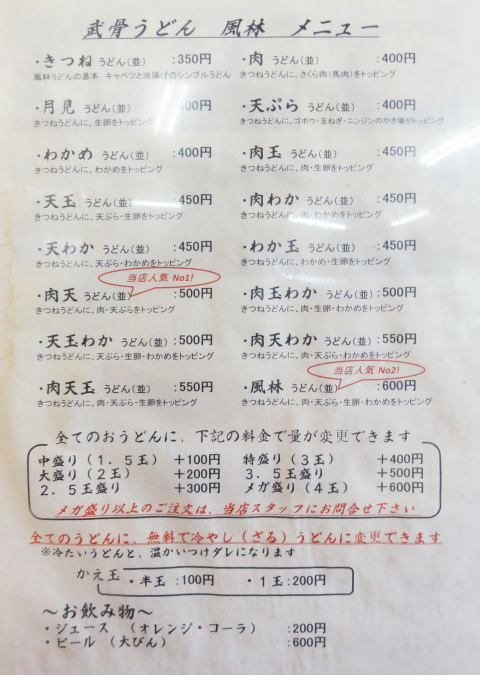 武骨うどん 風林 メニュー
・きつね うどん(並) :350円
風林うどんの基本 キャベツと油揚げのシンプルうどん
・肉 うどん(並) :400円
きつねうどんに、さくら肉(馬肉)をトッピング
・月見 うどん(並) 400円
きつねうどんに、生卵をトッピング
・天ぷら うどん(並) :400円
きつねうどんに、ゴボウ・玉ねぎ・ニンジンのかき揚がトッピング
・わかめ うどん(並) :400円
きつねうどんに、わかめをトッピング
・肉玉 うどん(並) :450円
きつねうどんに、肉・生卵をトッピング
・天玉 うどん(並) :450円
きつねうどんに、天ぷら・生卵をトッピング
・肉わか うどん(並) :450円
きつねうどんに、肉・わかめをトッピング
・天わか うどん(並) :450円
きつねうどんに、天ぷら・わかめをトッピング
・わか玉 うどん(並) :450円
きつねうどんに、わかめ・生卵をトッピング
当店人気 No1!
・肉天 うどん(並) :500円
きつねうどんに、肉・天ぷらをトッピング
・肉玉わか うどん(並) :500円
きつねうどんに、肉・生卵・わかめをトッピング
・天玉わか うどん(並) :500円
きつねうどんに、天ぷら・生卵・わかめをトッピング
・肉天わか うどん(並) :550円
きつねうどんに、肉・天ぷら・わかめをトッピング
・肉天玉 うどん(並) :550円
きつねうどんに、肉・天ぷら・生卵をトッピング
当店人気 No2!
・風林 うどん(並) :600円
きつねうどんに、肉・天ぷら・生卵・わかめをトッピング
全てのおうどんに、下記の料金で量が変更できます
中盛り(1.5玉) +100円
特盛り(3玉) +400円
大盛り(2玉) +200円
3.5玉盛り +500円
2.5玉盛り +300円
メガ盛り(4玉) +600円
メガ盛り以上のご注文は、当店スタッフにお問合せ下さい
全てのうどんに、無料で冷やし(ざる)うどんに変更できます
※冷たいうどんと、温かいつけダレになります
かえ玉
・半玉:100円 ・1玉:200円
~お飲み物~
・ジュース (オレンジ・コーラ) :200円
・ビール (大びん) :600円